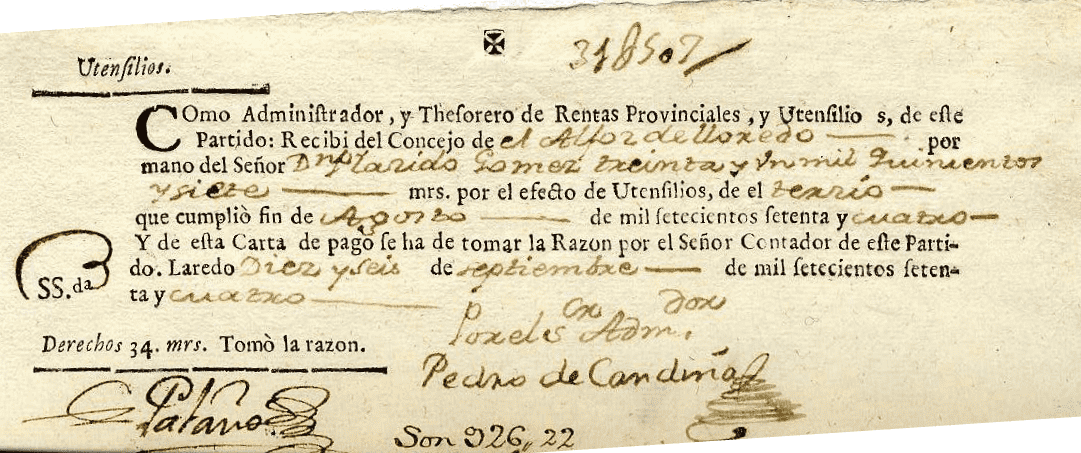 318507
Utensilios.
COmo Administrador, y Thesorero de Rentas Provinciales, y Utensilio s, de este
Partido: Recibi del Concejo de el Alfoz de lloredo por
mano del Señor Dn Placido Gomez treinta y un mil quinientos
y siete mrs. por el efecto de Utensilios, de el terzio
que cumpliò fin de Agosto de mil setecientos setenta y cuatro
Y de esta Carta de pago se ha de tomar la Razon por el Señor Contador de este Parti-
do. Laredo Diez y seis de septiembre de mil setecientos seten-
SS.da
ta y cuatro
Por el Sor Admdor
Derechos 34. mrs. Tomò la razon.
Pedro de Candina
Son 926,, 22